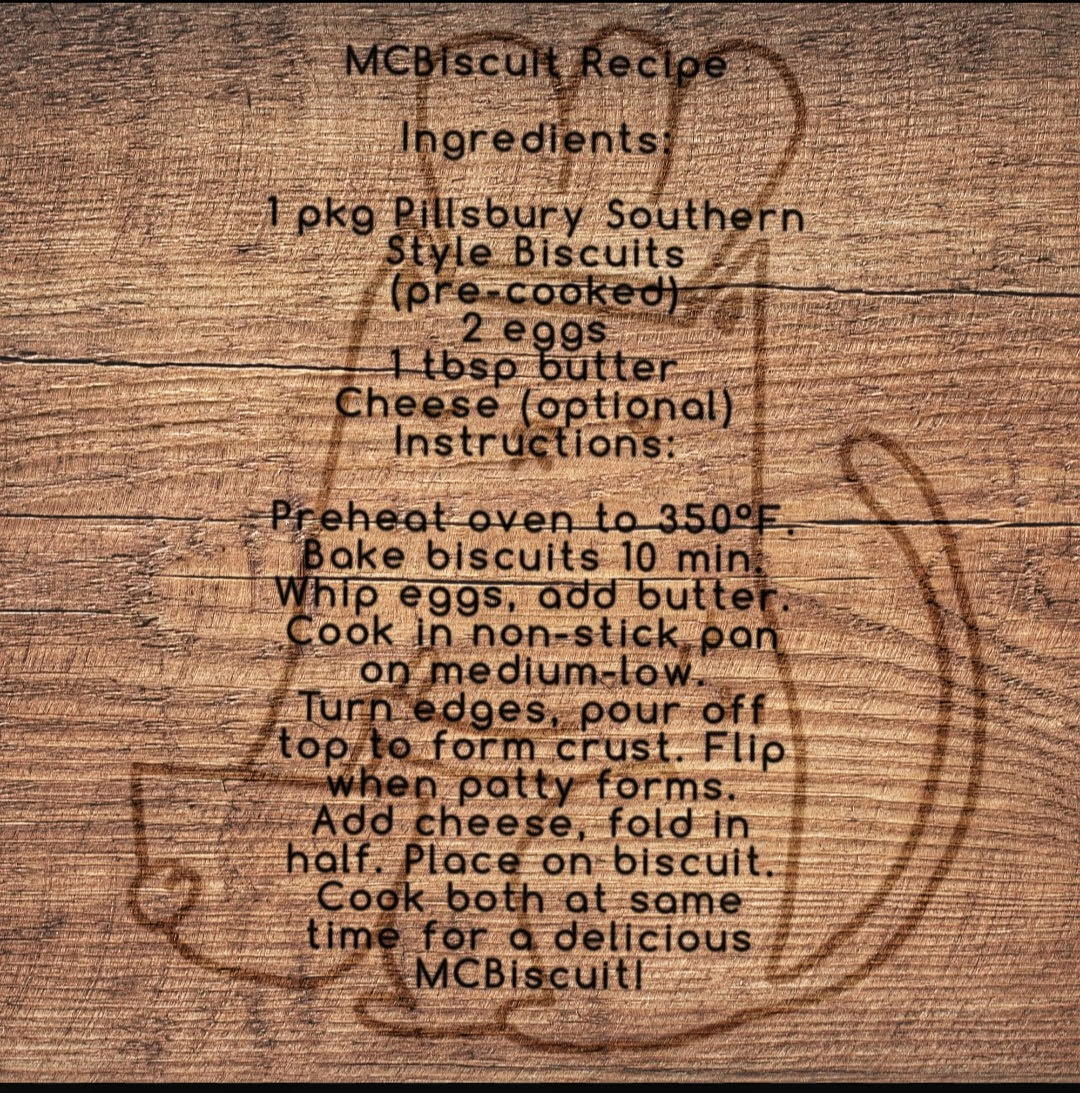 MCBiscuit Recipe
Ingredients:
1 pkg Pillsbury Southern
Style Biscuits
(pre-cooked)
2 eggs
1 tbsp butter
Cheese (optional)
Instructions:
Preheat oven to 350°F.
Bake biscuits 10 min.
Whip eggs, add butter.
Cook in non-stick pan
on medium-low.
Turn edges, pour off
top to form crust. Flip
when patty forms.
Add cheese, fold in
half. Place on biscuit.
Cook both at same
time for a delicious
MCBiscuit!